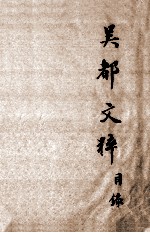 吴都文粹
目录